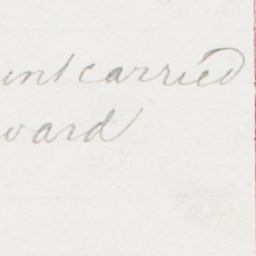 unt carried
ward